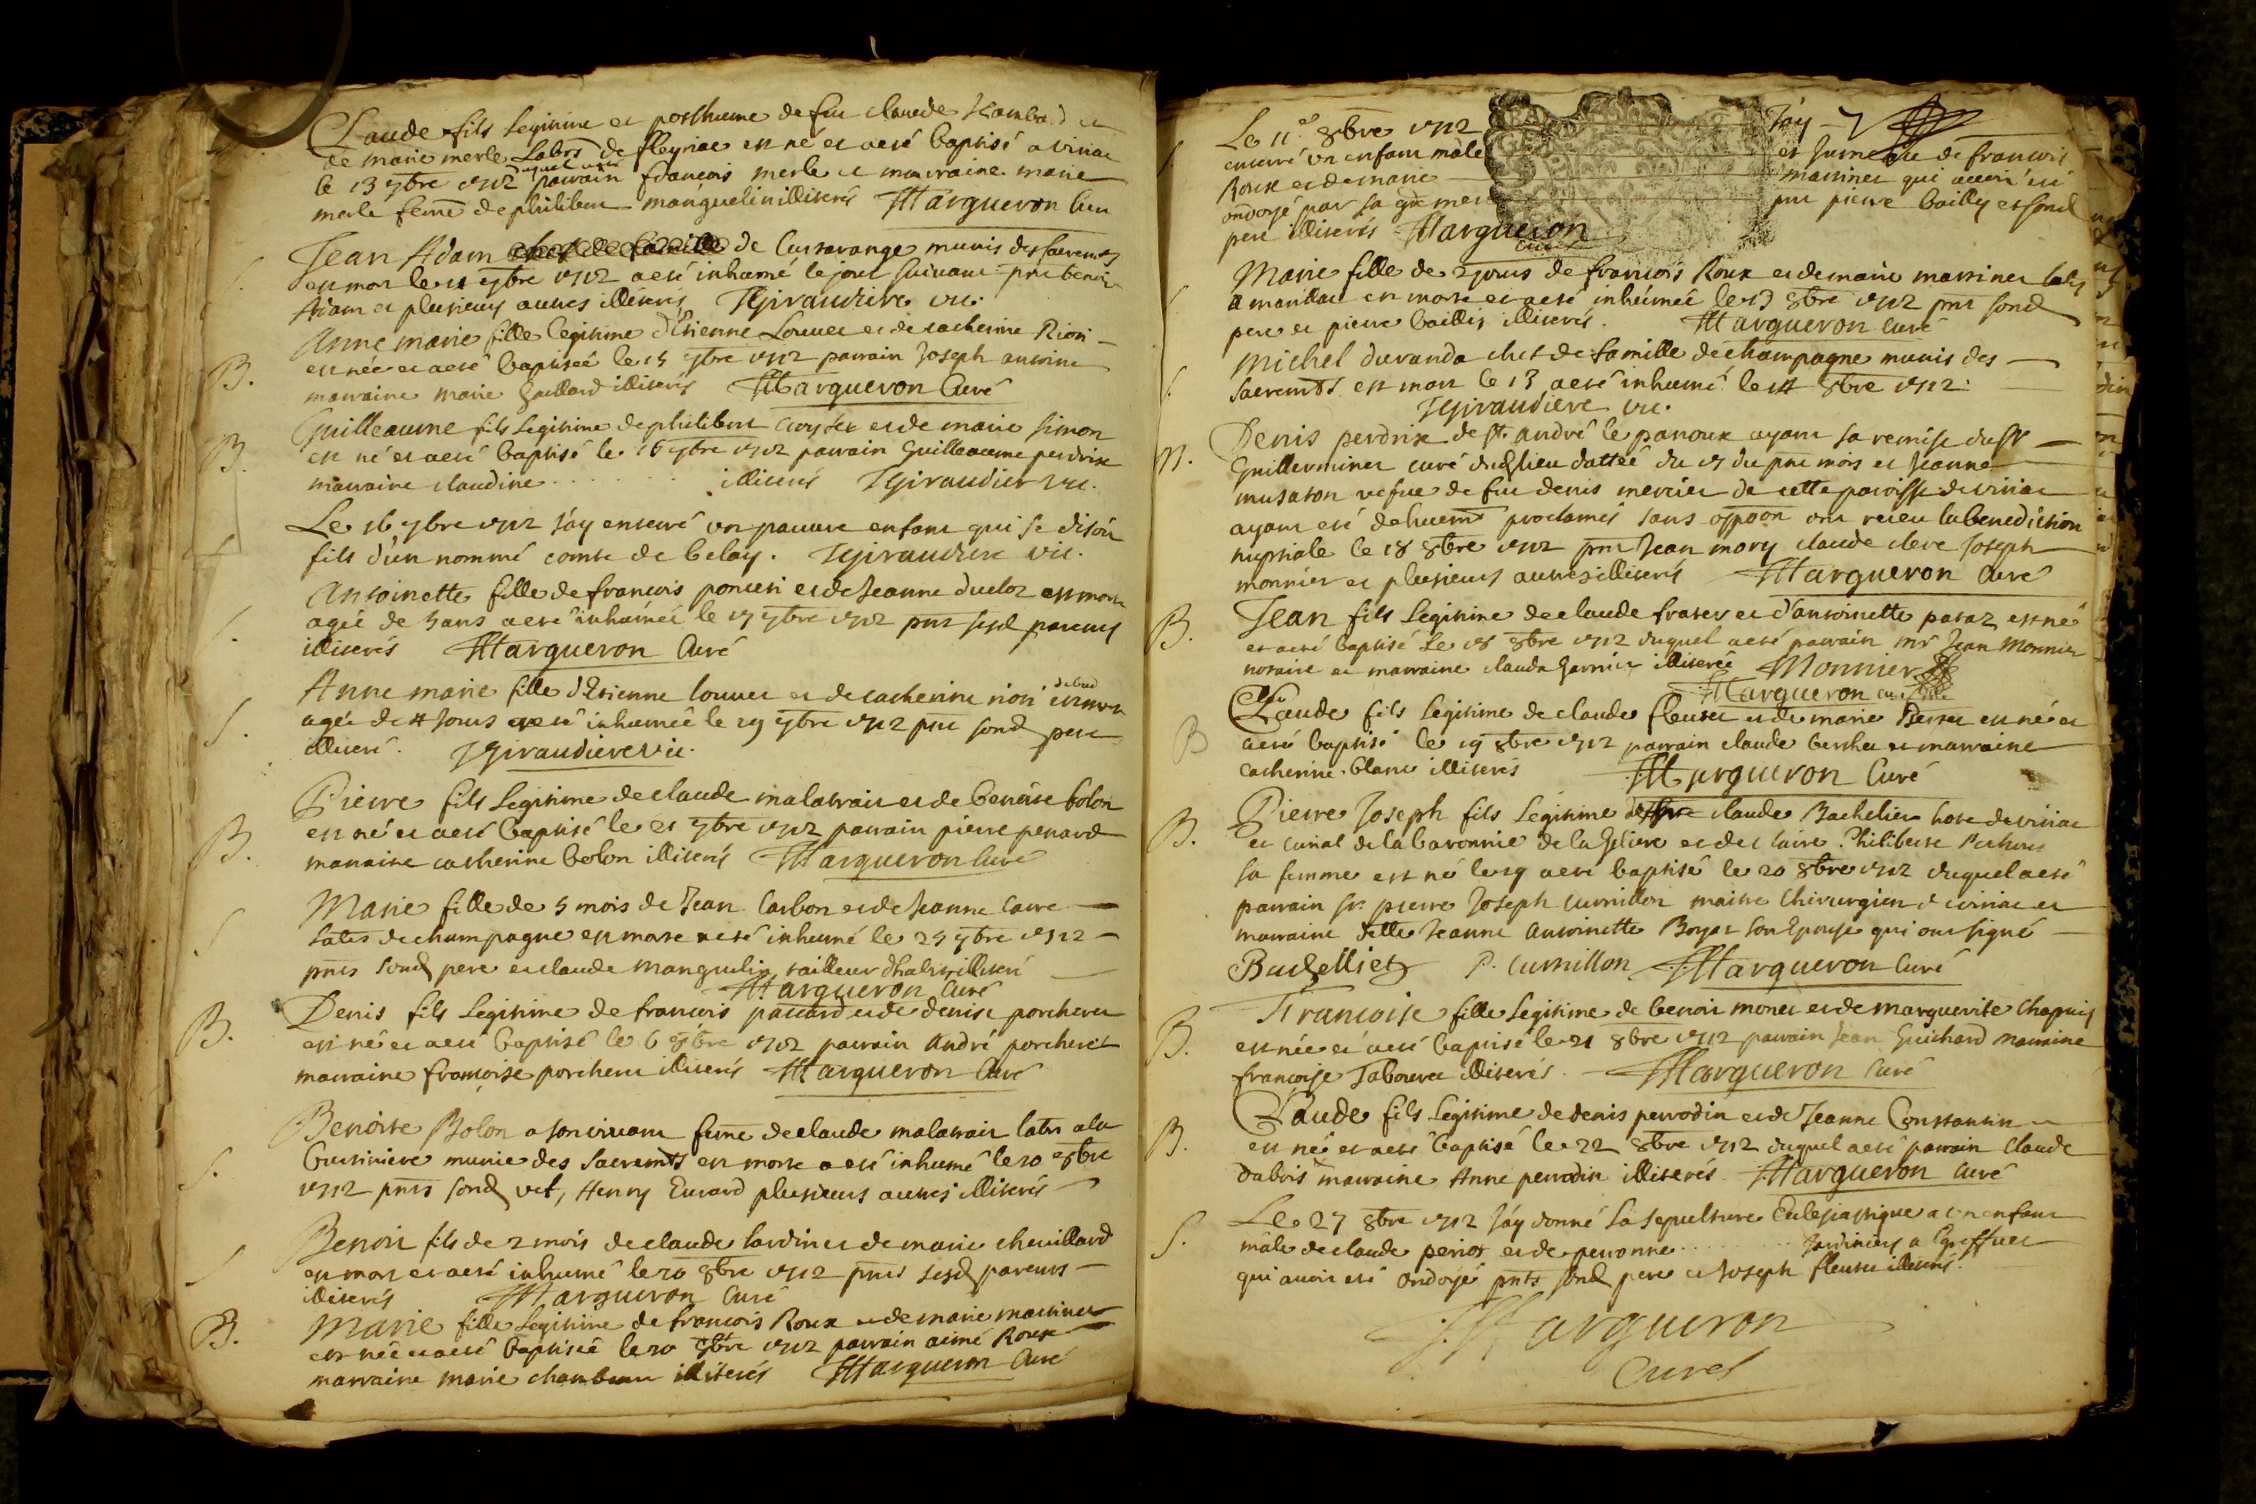 Claude fils legitime et posthume de feu claude
de marie merle Labrs de fleyriac est né et a eté baptisé a viriac
le 13 7bre 1712 duquel a eté parrain francois merle et marraine marie
merle feme de philibert manguelin illiterés JMargueron Curé
S.
Jean Adam de Cussavange munis des sacremts
est mort le 7bre 1712 a eté inhumé le jour suivant pnt benoit
Adam et plusieurs autres illiterés JGiraudiere vic.
B.
Anne marie fille legitime d'Etienne Louvet et de catherine Rion
est née et a eté baptiseé le 15 7bre 1712 parrain Joseph antoine
marraine marie Gaillard illiterés JMargueron Curé
B.
Guilleaume fils legitime de philibert et de marie simon
est né et a eté baptisé le 16 7bre 1712 parrain Guilleaume perdrix
marraine claudine . . . . . . . illiterés JGiraudier vic.
S
Le 16 7bre 1712 J'ay enterré un pauvre enfant qui se disoit
fils d'un nommé comte de belay. JGiraudiere vic.
S.
Antoinette fille de francois poncin et de Jeanne duclos est morte
ageé de 5 ans a eté inhumeé le 17 7bre 1712 pnts sesd parents
illiterés JMargueron Curé
S.
Anne marie fille d'Etienne louvet et de catherine rion est morte
ageé de Jours a eté inhumeé le 19 7bre 1712 pnt sond pere
illiteré. JGiraudiere vic.
B.
Pierre fils Legitime de claude malatrait et de benoite bolon
est né et a eté baptisé le 21 7bre 1712 parrain pierre penard
marraine catherine bolon illiterés JMargueron Curé
S
Marie fille de 5 mois de Jean Carbon et de Jeanne Carre
Labrs de champagne est morte a eté inhumé le 25 7bre 1712
pnts sond pere et claude manguelin tailleur d'habits illiteré
JMargueron Curé
B.
Denis fils Legitime de francois pauard et de denise porcheret
est né et a eté baptisé le 6 8bre 1712 parrain André porcheret
marraine francoise porcheret illiterés JMargueron Curé
S.
Benoite Bolon a son vivant feme de claude malatrait labr a la
bussiniere munie des sacremts est morte a eté inhumé le 10 8bre
1712 pnts sond vef, Henry Euvard plusieurs autres illiterés
S
Benoit fils de 2 mois de claude Jardinet de marie chevillard
est mort et a eté inhumé le 10 8bre 1712 pnts sesd parents
illiterés JMargueron Curé
B.
Marie fille legitime de francois Roux et de marie martinet
est née et a eté baptiseé le 10 8bre 1712 parrain aimé Roux
marraine marie illiterés JMargueron Curé
S.
Le 11e 8bre 1712 J'ay
enterré un enfant mâle et Jumeau de francois
Roux et de marie martinet qui avoit eté
ondoyé par sa pnt pierre bailly et sond
pere illiterés JMargueron
curé
S
Marie fille de 2 jours de francois Roux et de marie martinet labrs
a marillat est morte et a eté inhumeé le 13 8bre 1712 pnt sond
pere et pierre baillis illiterés. JMargueron Curé
S.
Michel duranda chef de famille de champagne munis des
sacremts est mort le 13 a eté inhumé le 14 8bre 1712.
JGiraudiere vic.
M.
Denis perdrix de St. andré le panoux ayant sa remise du Sr
Guillerminet curé dud lieu datteé du 17 du pnt mois et Jeanne
musaton vefue de feu denis mercier de cette paroisse de viriac
ayant eté dehuemt proclamés sans oppoon ont receu la benediction
nuptiale le 18 8bre 1712 pnt Jean mory claude clere Joseph
monnier et plusieurs autres illiterés JMargueron Curé
B.
Jean fils Legitime de claude frater et d'antoinette pataz est né
et a eté baptisé Le 18 8bre 1712 duquel a eté parrain mr Jean Monnier
notaire et marraine clauda Garnier illiterée Monnier
JMargueron curé
B
Claude fils legitime de claude fleuret et de marie est né et
a eté baptisé le 19 8bre 1712 parrain claude berchet et marraine
catherine blanc illiterés JMargueron Curé
B.
Pierre Joseph fils Legitime de claude Bachelier hote de viriac
et curial de la baronnie de la Geliere et de claire Philiberte
sa femme est né le 19 a eté baptisé le 20 8bre 1712 duquel a eté
parrain sr. pierre Joseph curnillon maitre chirurgien de viriac et
marraine delle Jeanne Antoinette Boyat son Epouse qui ont signé
Bachellier P. Curnillon JMargueron Curé
B.
Francoise fille Legitime de benoit monet et de marguerite chapuis
est née et a eté baptisé le 21 8bre 1712 parrain Jean Guichard marraine
francoise Tabouret illiterés. JMargueron Curé
B.
Claude fils Legitime de denis perrodin et de Jeanne Constantin
est né et a eté baptisé le 22 8bre 1712 duquel a eté parrain Claude
dubois marraine Anne perrodin illiterés JMargueron Curé
S.
Le 27 8bre 1712 J'ay donné la sepulture Ecclesiastique a un enfant
mâle de claude perrot et de perronne . . . . . . Jardiniers a
qui avoit eté ondoyé pnts sond pere et Joseph fleuret illiterés.
JMargueron
Curé